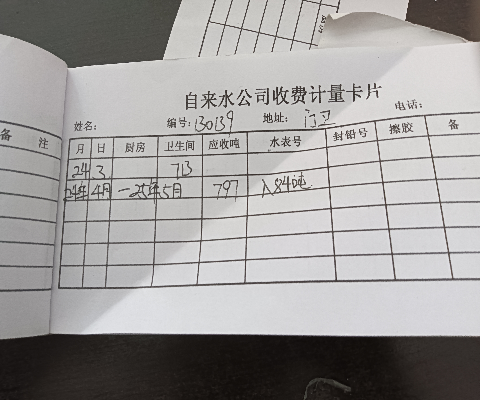 自来水公司收费计量卡片
姓名: 编号: 130139 地址: 门卫 电话:
备 注 月 日 厨房 卫生间 应收吨 水表号 封铅号 擦胶 备
24.3 713
24年4月-25年5月 797 入84吨